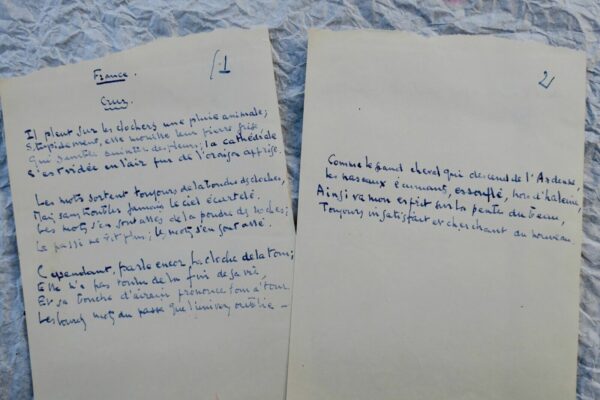 France.
(1
Cruz.
Il pleut sur les clochers une pluie animale;
Stupidement, elle mouille leur pierre grise
Qui semble suinter de pleurs; la cathédrale
S'est vidée en l'air pur de l'oraison apprise.
Les mots sortent toujours de la bouche des cloches,
Mais sans troubler jamais le ciel écartelé.
Les mots s'en sont allés de la poudre des roches;
Le passé n'est plus; le mot s'en est allé.
Cependant, parle encor la cloche de la tour;
Elle n'a pas voulu de la fin de sa vie,
Et sa bouche d'airain prononce tour à tour
Les lourds mots du passé que l'univers oublie
2
Comme le grand cheval qui descend de l'Ardenne,
les naseaux écumant, essoufflé, hors d'haleine,
Ainsi va mon esprit sur la pente du beau,
Toujours insatisfait et cherchant du nouveau.